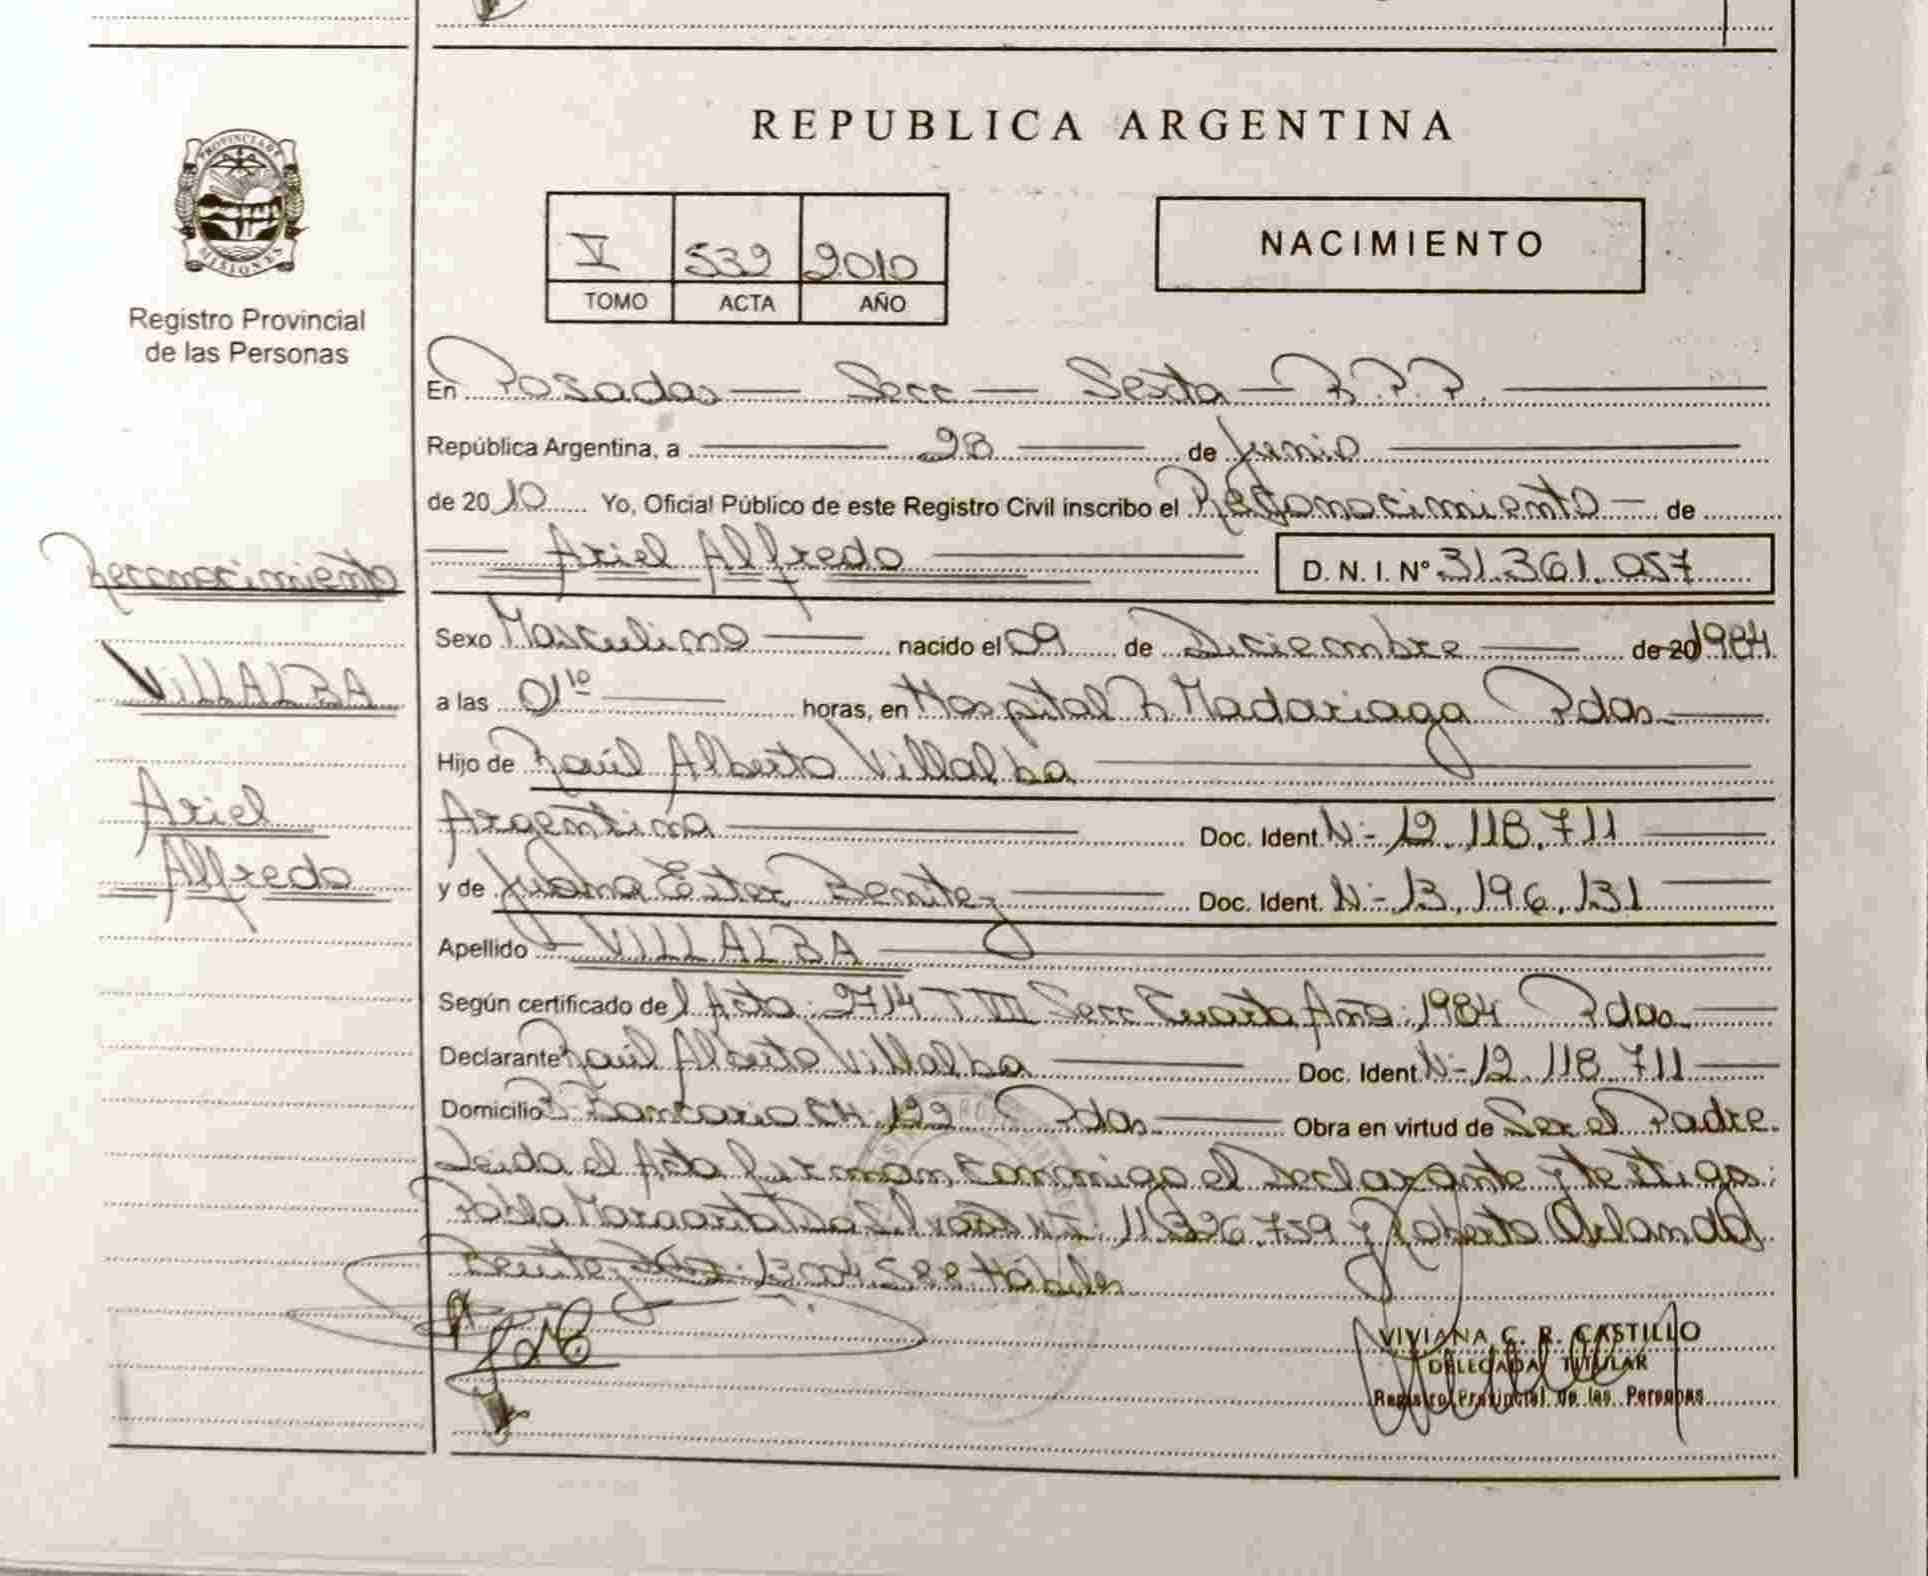 REPUBLICA ARGENTINA
PROVINCIA DE
MISIONES
Registro Provincial
de las Personas
V 532 2010
TOMO ACTA AÑO
NACIMIENTO
En Posadas — Secc — Sexta — R.P.P.
República Argentina, a 28 de Junio
de 2010 Yo, Oficial Público de este Registro Civil inscribo el Reconocimiento — de
Ariel Alfredo D. N. I. Nº 31.361.057
Reconocimiento
VILLALBA
Ariel
Alfredo
Sexo Masculino nacido el 09 de Diciembre de 20 1984
a las 01¹⁰ horas, en Hospital R Madariaga Pdas
Hijo de Raúl Alberto Villalba
Argentina Doc. Ident. N- 12.118.711
y de Ester Benitez Doc. Ident. N- 13.196.131
Apellido VILLALBA
Según certificado del Acta 2714 T III Secc Cuarta Año 1984 Pdas
Declarante Raúl Alberto Villalba Doc. Ident N- 12.118.711
Domicilio 122 Pdas Obra en virtud de Ser el Padre.
Leida el Acta firman conmigo el Declarante y testigos:
y Roberto Orlando
Benitez habiles
VIVIANA C. R. CASTILLO
DELEGADA TITULAR
Registro Provincial de las Personas